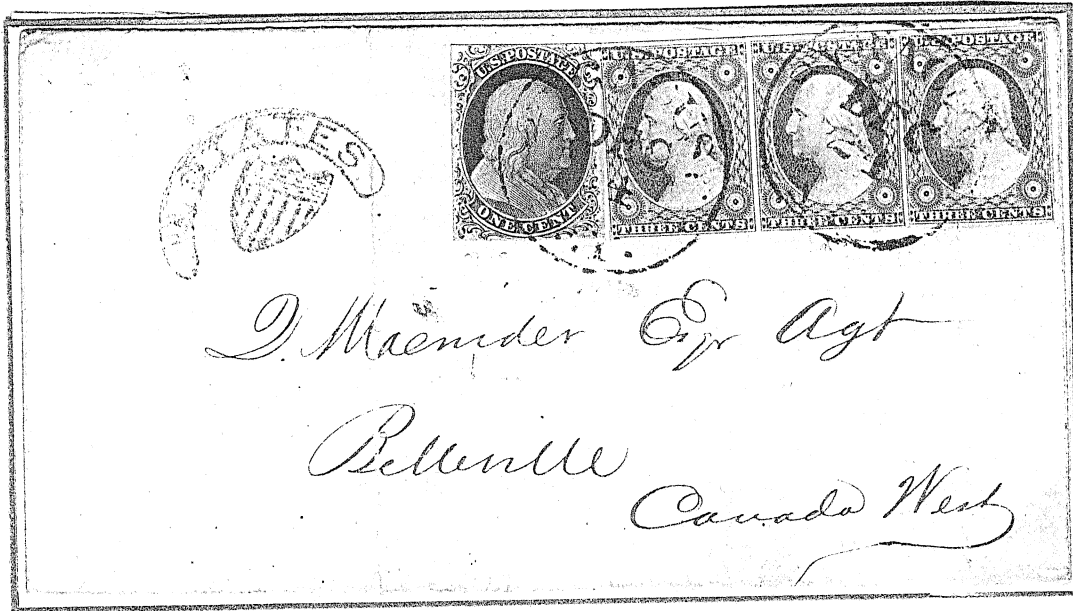 U. STATES
U.S. POSTAGE
ONE CENT
U.S. POSTAGE
THREE CENTS
U.S. POSTAGE
THREE CENTS
U.S. POSTAGE
THREE CENTS
D. Macnider Esqr Agt
Belleville
Canada West